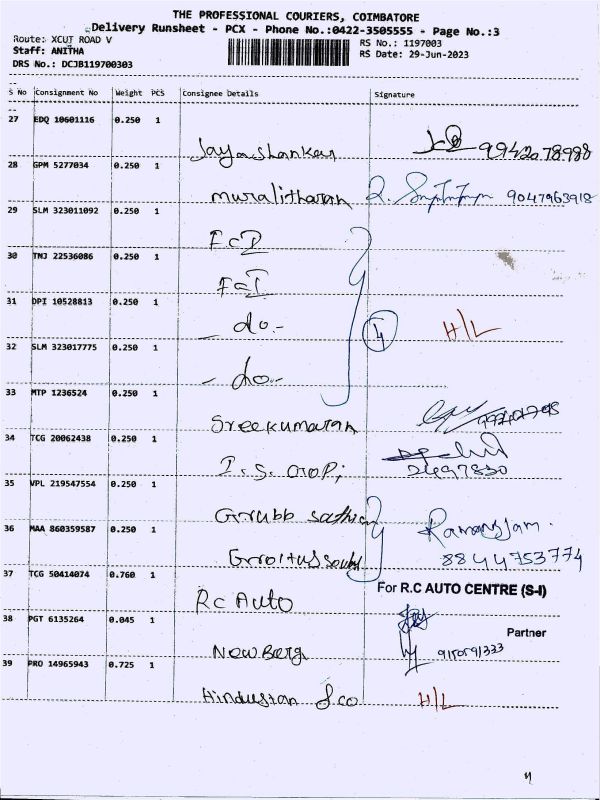 THE PROFESSIONAL COURIERS, COIMBATORE
Delivery Runsheet - PCX - Phone No.:0422-3505555 - Page No.:3
Route: XCUT ROAD V
RS No.: 1197003
Staff: ANITHA
RS Date: 29-Jun-2023
DRS No.: DCJB119700303
S No Consignment No Weight PCS Consignee Details Signature
27 EDQ 10601116 0.250 1
Jayashankar 9942078988
28 GPM 5277034 0.250 1
muralitharan 9047963918
29 SLM 323011092 0.250 1
FCI
30 TNJ 22536086 0.250 1
FCI
31 DPI 10528813 0.250 1
- do.- 4 H/L
32 SLM 323017775 0.250 1
- do.-
33 MTP 1236524 0.250 1
Sreekumaran
34 TCG 20062438 0.250 1
I.S. 2497830
35 VPL 219547554 0.250 1
36 MAA 860359587 0.250 1
8844753774
37 TCG 50414074 0.760 1
For R.C AUTO CENTRE (S-I)
RC Auto
38 PGT 6135264 0.045 1
Partner
New Berg
39 PRO 14965943 0.725 1
Hindustan & co H/L